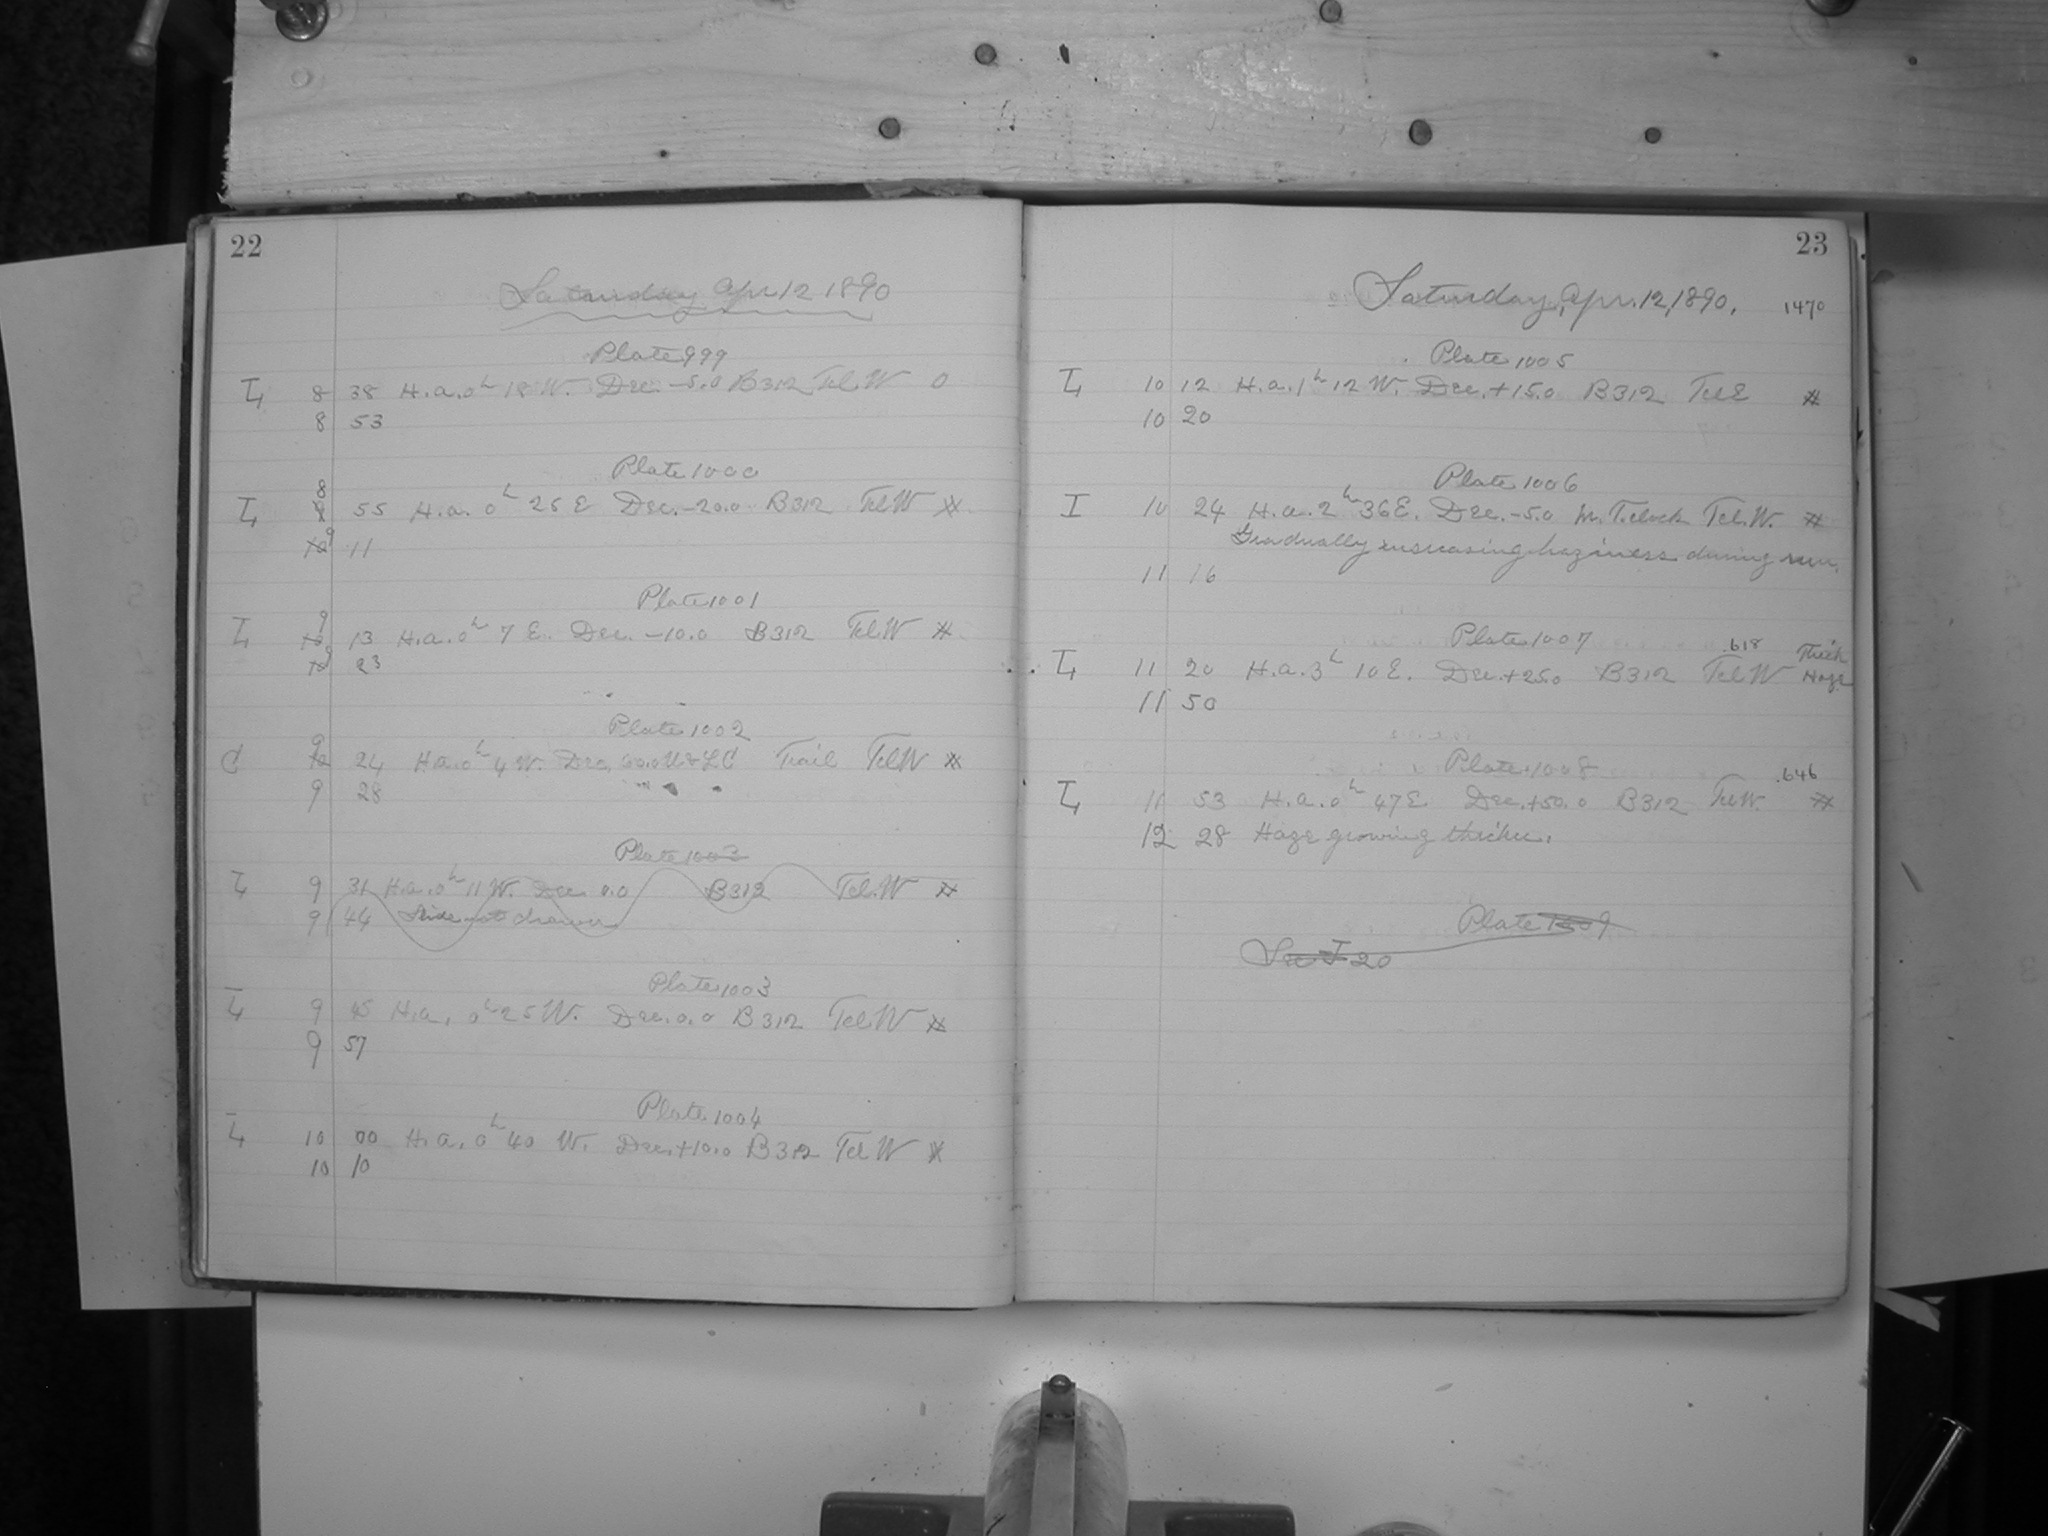 22
Saturday Apr. 12 1890
Plate 999
I4 8 38 H.a. 0h 18 W. Dec. -5.0 B312 Tel. W 0
8 53
Plate 1000
8
I4 55 H.a. 0h 25 E Dec. -20.0 B312 Tel. W *
9 11
Plate 1001
9
I4 13 H.a. 0h 7 E. Dec. -10.0 B312 Tel. W *
9 23
Plate 1002
9
C 24 H.a. 0h 4 W. Dec. 60.0 U&LC Trail Tel W *
9 28
Plate 1003
I4 9 31 H.a. 0h 11 W. Dec. 0.0 B312 Tel. W *
9 44 Slide not drawn
Plate 1003
I4 9 45 H.a. 0h 25 W. Dec. 0.0 B312 Tel W *
9 57
Plate 1004
I4 10 00 H.a. 0h 40 W. Dec. +10.0 B312 Tel W *
10 10
23
Saturday, Apr. 12, 1890. 1470
Plate 1005
I4 10 12 H.a. 1h 12 W. Dec. +15.0 B312 Tel E *
10 20
Plate 1006
I 10 24 H.a. 2h 36 E. Dec. -5.0 M.T. clock Tel. W. *
Gradually increasing haziness during run.
11 16
Plate 1007
.618 Thick
I4 11 20 H.a. 3h 10 E. Dec. +25.0 B312 Tel W Haze
11 50
Plate 1008
.646
I4 11 53 H.a. 0h 47 E Dec. +50.0 B312 Tel W. *
12 28 Haze growing thicker.
Plate 1009
See I 20